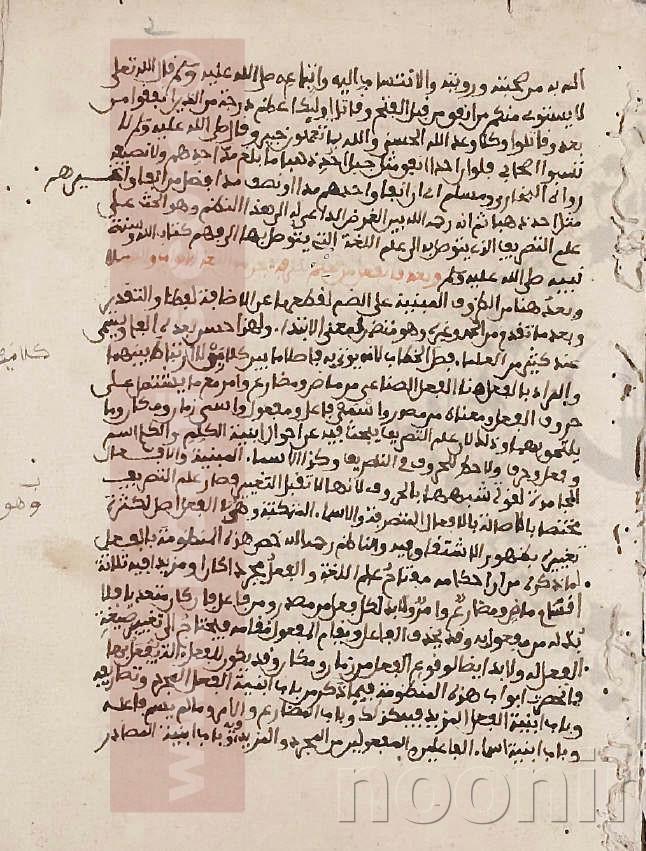 الدين من محبته ورؤيته والانتساب اليه واتباعه صلى الله عليه وسلم قال الله تعلى
لا يستوى منكم من انفق من قبل الفتح وقاتل اوليك اعظم درجة من الذين انفقوا من
بعد وقاتلوا وكلا وعد الله الحسنى والله بما تعملون خبير وقال صلى الله عليه وسلم لا
تسبوا اصحابي فلو ان احدا انفق مثل جبل احد ذهبا ما بلغ مد احدهم ولا نصيفه
رواه البخارى ومسلم
مثل احد ذهبا ثم انه رحمه الله بين الغرض الداعى له الى هذا النظم وهو الحث على
علم التصريف الذى يتوصل به الى علم اللغة التى يتوصل بها الى فهم كتاب الله وسنة
نبيه صلى الله عليه وسلم وبعد فالفعل من
وبعد هنا من الظروف المبنية على الضم لقطعها عن الاضافة لفظا والتقدير
وبعد ما تقدم من الحمد وغيره وهو متضمن لمعنى الابتداء ولهذا حسن بعده الفا ويسمى
عند كثير من العلماء فصل الخطاب لانه يوتى به فاصلا ما بين كلامين لا ارتباط بينهما
والمراد بالفعل هنا الفعل الصناعى من ماض ومضارع وامر مع ما يشتمل على
حروف الفعل ومعناه من مصدر واسمى فاعل ومفعول واسمى زمان ومكان وما
يلتحق بهما وذلك لان علم التصريف يبحث فيه عن احوال ابنية الكلم والكلم اسم
وفعل وحرف ولا حظ للحروف فى التصريف وكذا الاسماء المبنية والافعال
الجامدة لقوة شبهها بالحروف لانها لا تقبل التغيير فصار علم التصريف
مختصا بالاصالة بالافعال المتصرفة والاسماء المتمكنة وهو فى الفعل اصل لكثرة
تغييره بظهور الاشتقاق فيه والناظم رحمه الله خص هذه المنظومة بالفعل
لما ذكره من ان احكامه مفتاح علم اللغة والفعل مجردا كان او مزيدا فيه ثلاثة
اقسام ماض ومضارع وامر ولا بد لكل فعل من مصدر ومن فاعل فان كان متعديا فلا
بد له من مفعول به وقد يحذف الفاعل ويقام المفعول مقامه فيحتاج الى تغيير صيغة
الفعل له ولا بد ايضا لوقوع الفعل من زمان ومكان وقد يكون للفعل الة يفعل بها
فانحصرت ابواب هذه المنظومة فيما ذكر من باب ابنية الفعل المجرد وتصاريفه
وباب ابنية الفعل المزيد فيه كذلك وباب المضارع والامر وما لم يسم فاعله
وباب ابنية اسماء الفاعلين والمفعولين من المجرد والمزيد فيه وباب ابنية المصادر
كلامين
وهو
noonin